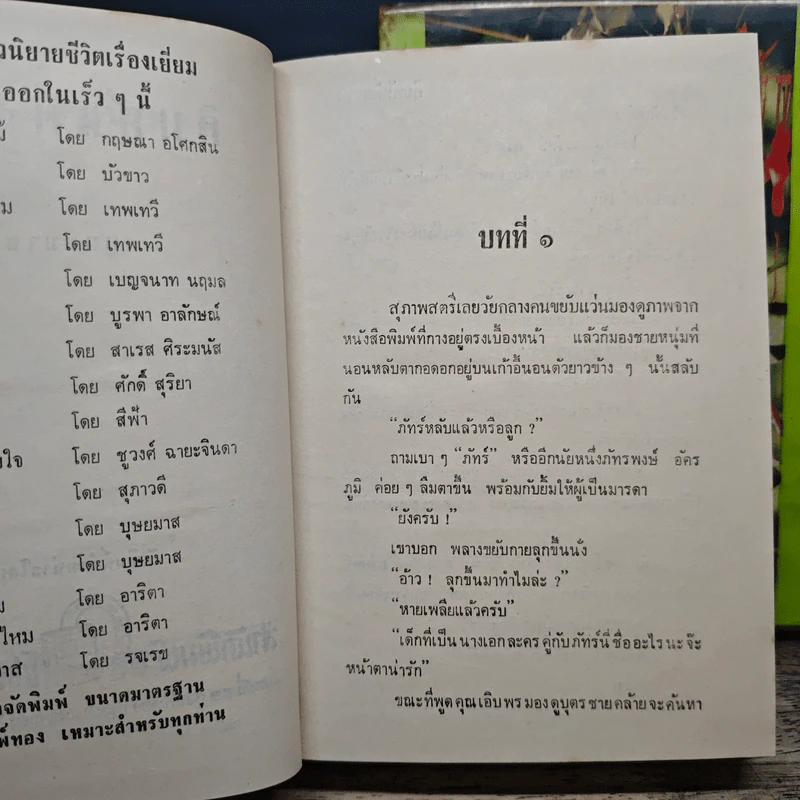 นิยายชีวิตเรื่องเยี่ยม
ออกในเร็ว ๆ นี้
โดย กฤษณา อโศกสิน
โดย บัวขาว
โดย เทพเทวี
โดย เทพเทวี
โดย เบญจนาท นฤมล
โดย บูรพา อาลักษณ์
โดย สาเรส ศิระมนัส
โดย ศักดิ์ สุริยา
โดย สีฟ้า
โดย ชูวงศ์ ฉายะจินดา
โดย สุภาวดี
โดย บุษยมาส
โดย บุษยมาส
โดย อาริตา
โดย อาริตา
โดย รจเรข
จัดพิมพ์ ขนาดมาตรฐาน
พ์ทอง เหมาะสำหรับทุกท่าน
บทที่ ๑
สุภาพสตรีเลยวัยกลางคนขยับแว่นมองดูภาพจาก
หนังสือพิมพ์ที่กางอยู่ตรงเบื้องหน้า แล้วก็มองชายหนุ่มที่
นอนหลับตากอดอกอยู่บนเก้าอี้นอนตัวยาวข้าง ๆ นั้นสลับ
กัน
“ภัทร์หลับแล้วหรือลูก ?”
ถามเบา ๆ “ภัทร์” หรืออีกนัยหนึ่งภัทรพงษ์ อัคร
ภูมิ ค่อย ๆ ลืมตาขึ้น พร้อมกับยิ้มให้ผู้เป็นมารดา
“ยังครับ !”
เขาบอก พลางขยับกายลุกขึ้นนั่ง
“อ้าว ! ลุกขึ้นมาทำไมล่ะ ?”
“หายเพลียแล้วครับ”
“เด็กที่เป็นนางเอกละครคู่กับภัทร์นี่ชื่ออะไรนะจ๊ะ
หน้าตาน่ารัก”
ขณะที่พูดคุณเอิบพรมองดูบุตรชายคล้ายจะค้นหา